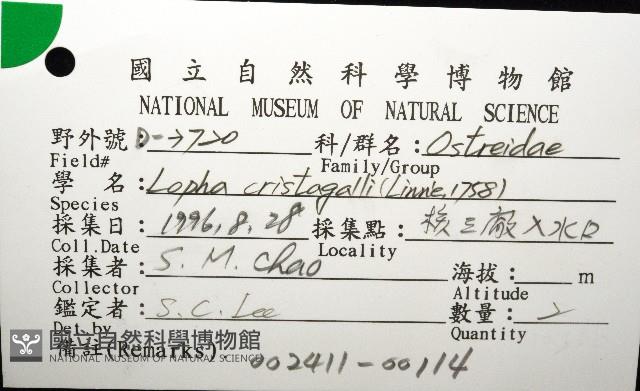 國立自然科學博物館
NATIONAL MUSEUM OF NATURAL SCIENCE
野外號: 科/群名: Ostreidae
Field# Family/Group
學 名: Lopha cristagalli (Linne, 1758)
Species
採集日: 1996, 8, 28 採集點: 核三廠入水口
Coll.Date Locality
採集者: S. M. Chao 海拔: m
Collector Altitude
鑑定者: S. C. Lee 數量: 2
Det.by Quantity
國立自然科學博物館
NATIONAL MUSEUM OF NATURAL SCIENCE
備註(Remarks): 002411-00114